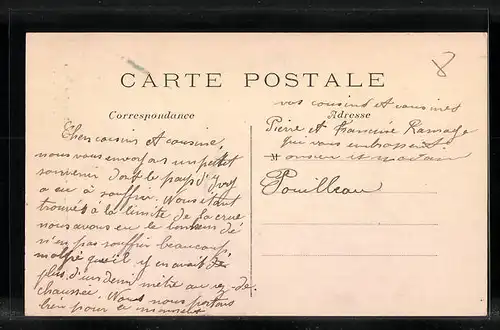 8
CARTE POSTALE
Correspondance
Adresse
Chers cousins et cousine,
nous vous envoyons un petit
souvenir dont le pays d'Ivry
a eu à souffrir. Nous étant
trouvés à la limite de la crue
nous avons eu le bonheur de
n'en pas souffrir beaucoup,
malgré qu'il y en avait de
plus d'un demi mètre au rez-de-
chaussée. Nous nous portons
bien pour le moment
vos cousins et cousines
Pierre et Francine Ramage
qui vous embrassent
Monsieur et Madame
Pouilleau